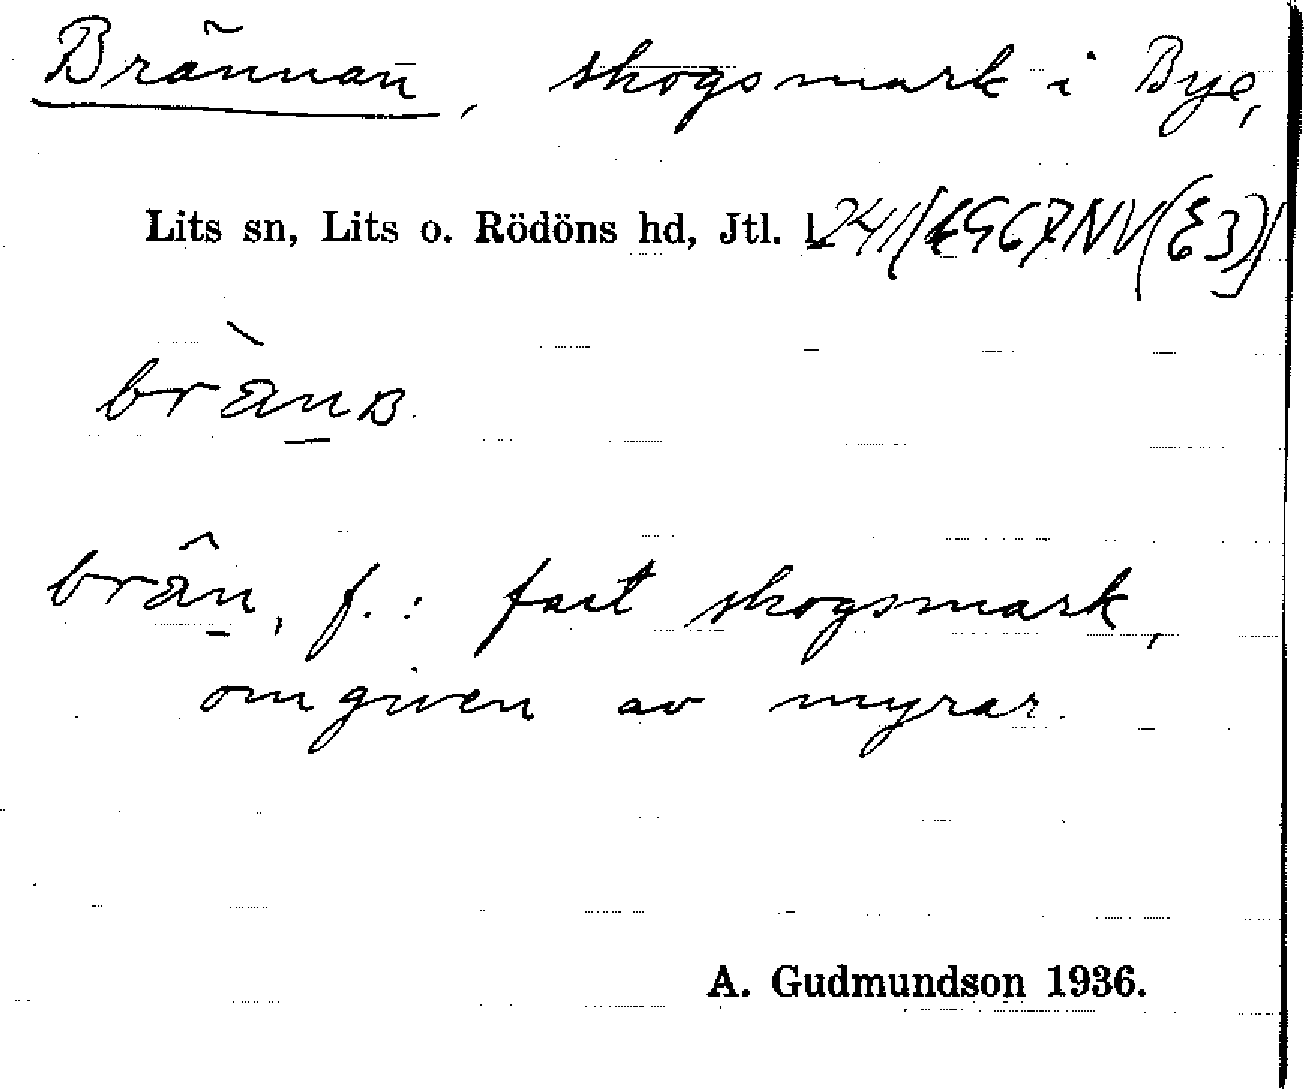 Brännan, skogsmark i Bye,
Lits sn, Lits o. Rödöns hd, Jtl. l.
brän, f.: fast skogsmark,
omgiven av myrar.
A. Gudmundson 1936.